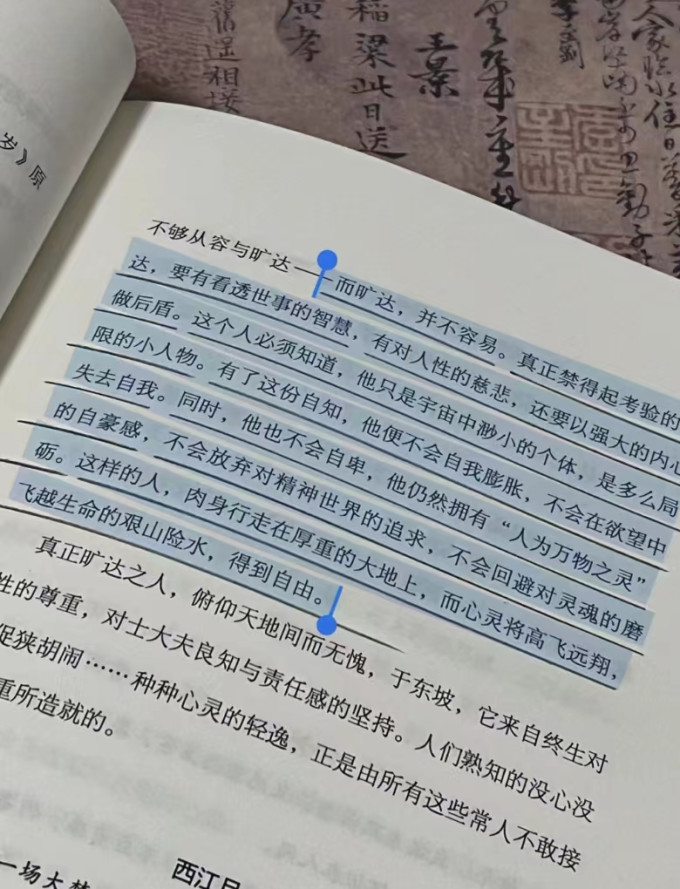 岁》原
不够从容与旷达——而旷达，并不容易。真正禁得起考验的
达，要有看透世事的智慧，有对人性的慈悲，还要以强大的内心
做后盾。这个人必须知道，他只是宇宙中渺小的个体，是多么局
限的小人物。有了这份自知，他便不会自我膨胀，不会在欲望中
失去自我。同时，他也不会自卑，他仍然拥有“人为万物之灵”
的自豪感，不会放弃对精神世界的追求，不会回避对灵魂的磨
砺。这样的人，肉身行走在厚重的大地上，而心灵将高飞远翔，
飞越生命的艰山险水，得到自由。
真正旷达之人，俯仰天地间而无愧，于东坡，它来自终生对
性的尊重，对士大夫良知与责任感的坚持。人们熟知的没心没
促狭胡闹……种种心灵的轻逸，正是由所有这些常人不敢接
重所造就的。
西江月
一场大梦
稻粱此日送
王景